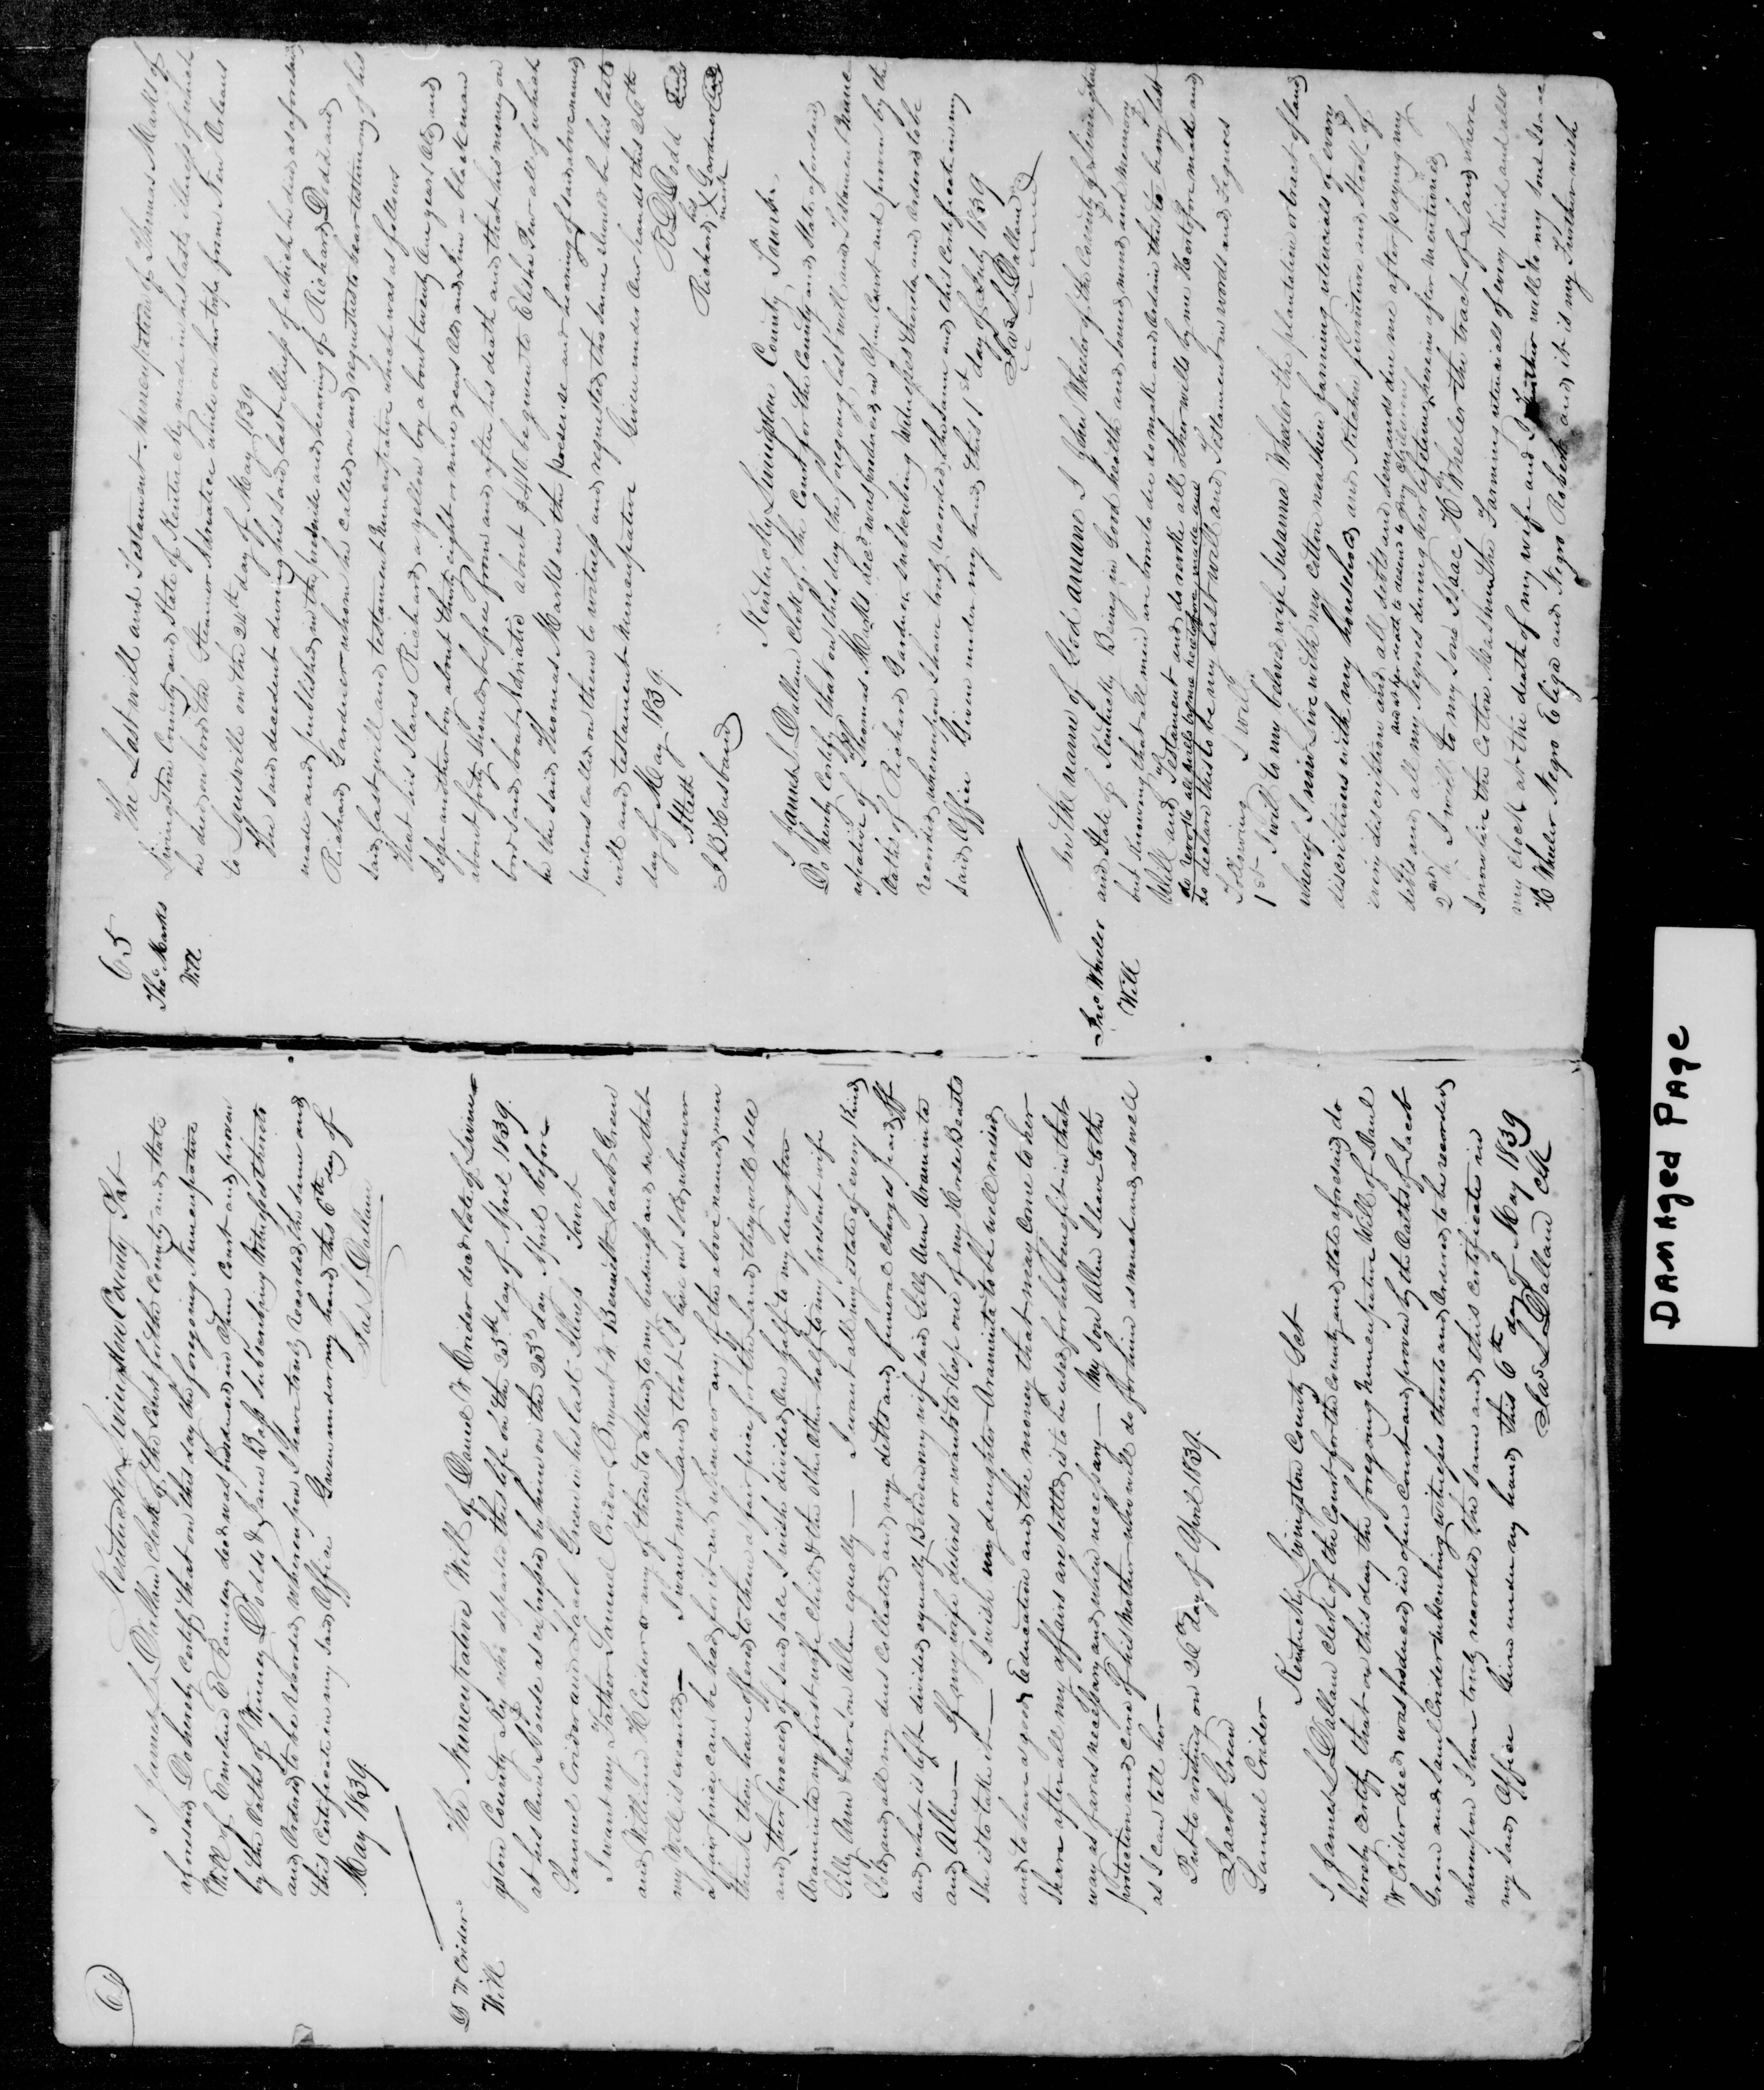 64
Kentucky Livingston County Sct
I James L Dallam Clerk of the Court for the County and State
aforesaid Do hereby Certify that on this day the foregoing Nuncupative
Will of Emiline E Ramsay decd was produced in Open Court and proven
by the Oaths of Winney Dodds & Jane Bass subscribing Witnesses thereto
and Ordered to be Recorded whereupon I have truly Recorded the same and
this Certificate in my said Office Given under my hand this 6th day of
May 1839
Jas L Dallam
D W Crider
Will
The Nuncupative Will of Daniel W Crider decd late of Livin
gston County Ky who departed this life on the 25th day of April 1839.
at his Own House as expressed by him on the 23d day April before
Samuel Crider and Jacob Green in his last Illness Towit
I want my Father Samuel Crider Bryant W Bennett Jacob Green
and William H Crider or any of them to attend to my business and see that
my Will is executed — I want my Land that I live on Sold whenever
a fair price can be had for it and whenever any of the above named men
think they have offered to them a fair price for the Land they will sell
and the proceeds of said sale I wish divided One half to my daughter
Araminta my first wife Child & the other half to my present wife
Silly Ann & her son Allen equally — I want all my estate of every kind
Sold and all my dues Collected and my debts and funeral charges paid off
and what is left divided equally Between my wife said Silly Ann Araminta
and Allen — If my wife desires or wants to keep one of my Horse Beasts
she is to take it — I wish my daughter Araminta to be well raised
and to have a good Education and the money that may Come to her
share after all my affairs are settled is to be used for her benefit in that
way as far as necessary and when necessary — My son Allen I leave to the
protection and care of his Mother who will do for him as much and as well
as I can tell her
Put to writing on 26th day of April 1839.
Jacob Green
Samuel Crider
Kentucky Livingston County Sct
I James L Dallam Clerk of the Court for the County and State aforesaid do
hereby certify that on this day the foregoing Nuncupative Will of Danl
W Crider decd was produced in open Court and proven by the Oaths of Jacob
Green and Saml Crider subscribing witnesses thereto and Ordered to be recorded
whereupon I have truly recorded the same and this certificate in
my said Office Given under my hand this 6th day of May 1839
Jas L Dallam Clk
65
Thos Marks
Will
The Last will and Testament Nuncupative of Thomas Marks of
Livingston County and State of Kentucky made in his last illness of which
he died on bord the Steamer Adriatic while on her trip from New Orleans
to Louisville on the 24th day of May 1839
The said decedent during his said last illness of which he died as aforesaid
made and published in the presence and hearing of Richard Dodd and
Richard Gardner whom he called on and requested to hear testimony of his
said last will and testament Nuncupative which was as follows
That his Slaves Richard a yellow boy about twenty One years Old and
Jep another boy about thirty eight or nine years Old and Jim a black man
about forty should be free from and after his death and that his money on
bord said boat Adriatic about $410. be given to Elisha Pew all of which
he the said Thomas Marks in the presense and hearing of said above named
persons called on them to witness and requested the same should be his last
will and testament Nuncupative Given under Our hands this 26th
day of May 1839.
Attest
J B Husband
R D Dodd Seal
Richard his X mark Gardner Seal
Kentucky Livingston County Towit,
I James L Dallam Clerk of the Court for the County and State aforesaid
Do hereby Certify that on this day the foregoing last will and Testament Nuncu
epative of Thomas Marks decd was produced in Open Court and proven by the
Oaths of Richard Gardner subscribing Witnesses thereto and Ordered to be
recorded whereupon I have truly recorded the same and this Certificate in my
said Office Given under my hand this 1st day of July 1839
Jas L Dallam
Jno Wheeler
Will
In the name of God amane I John Wheeler of the County of Livingston
and State of Kentucky Being in Good health and sound mind and memory
but knowing that all men are born to die do make and ordain this to be my last
Will and Testament and do revoke all other wills by me Heretofore made and
do revoke all wills by me heretofore made and
do declare this to be my Last will and Testament in words and Figures
Following I will
1st I will to my beloved wife Susanna Wheeler the plantation or tract of land
whereof I now Live with my Cotton mashien farming utencials of every
discriptions with my household and Kitchen furniture and Stock of
every discription and all debts and demands due me after paying my
and at her death to desend to my Children
debts and all my Negros during her lifetime herein after mentioned
2nd I will to my Sone Isaac H Wheeler the tract of Land where
I now live the Cotton Mashun the Farming utencials of every Kind and also
my clock at the death of my wife and I Further will to my Sone Isaac
H Wheeler Negro Eliza and Negro Robert and it is my Further wish
DAMAgeD PAge